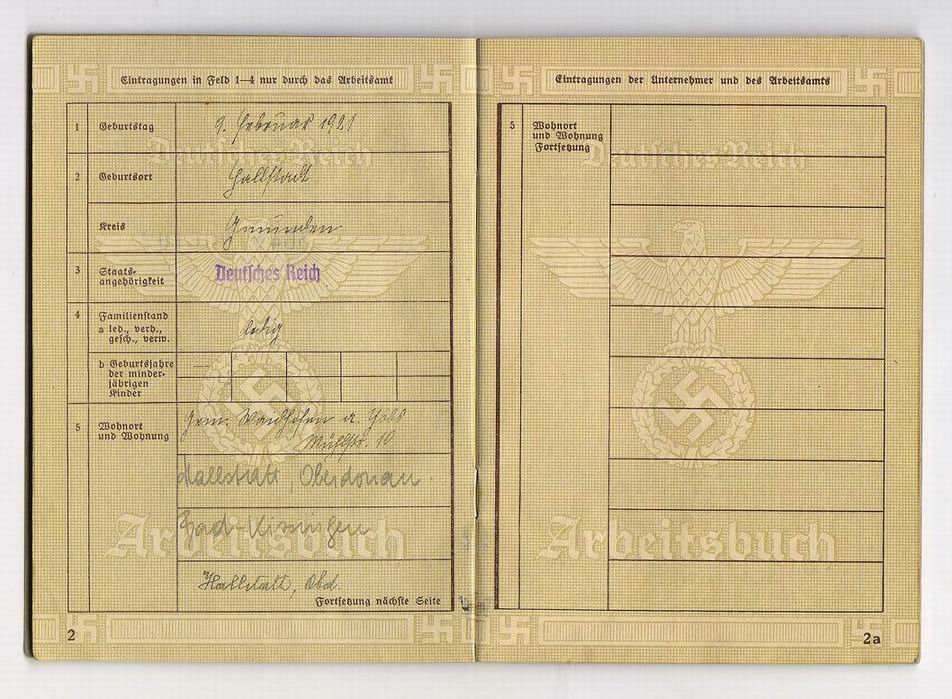 Eintragungen in Feld 1—4 nur durch das Arbeitsamt
1 Geburtstag 9. Februar 1921
2 Geburtsort Hallstadt
Kreis Gmunden
3 Staats-
angehörigkeit
Deutsches Reich
4 Familienstand
a led., verh.,
gesch., verw.
ledig
b Geburtsjahre
der minder-
jährigen
Kinder
5 Wohnort
und Wohnung
Gem. Waidhofen a. Ybbs
Mühlstr. 10
Hallstatt, Oberdonau
Bad-Kissingen
Hallstatt, Obd.
Fortsetzung nächste Seite
2
Deutsches Reich
Arbeitsbuch
Eintragungen der Unternehmer und des Arbeitsamts
5 Wohnort
und Wohnung
Fortsetzung
2a
Deutsches Reich
Arbeitsbuch